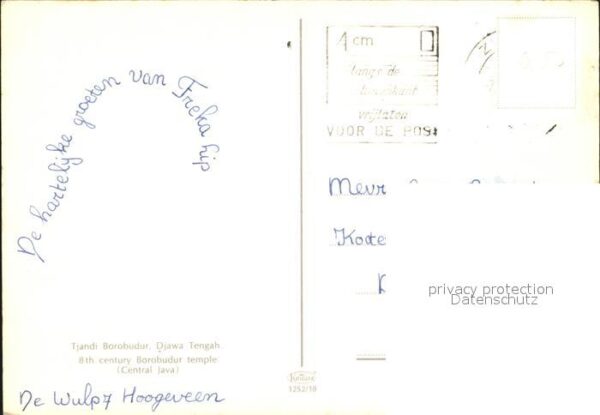 De hartelijke groeten van Freka
Tjandi Borobudur, Djawa Tengah
8th century Borobudur temple
(Central Java)
De Wulp 7 Hoogeveen
1252/18
1 cm
langs de
vrijlaten
VOOR DE POST
Mevr
privacy protection
Datenschutz